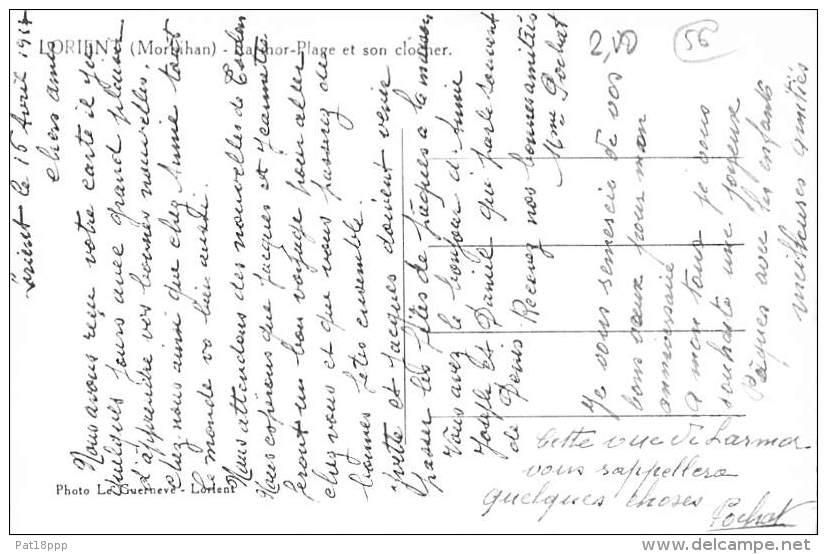 LORIENT (Morbihan) - Larmor-Plage et son clocher.
2,50
56
Lorient le 16 Avril 19
Chers amis
Nous avons reçu votre carte il y a
quelques jours avec grand plaisir
d'apprendre vos bonnes nouvelles.
chez nous ainsi que chez Annie tout
le monde va bien aussi.
Nous attendons des nouvelles de Toulon
Nous espérons que Jacques et Jeannette
feront un bon voyage pour aller
chez vous et que vous passerez de
bonnes fêtes ensemble.
Yvette et Jacques doivent venir
passer les fêtes de pâques a la maison
Vous avez le bonjour d'Annie
Joseph et Daniel qui parle souvent
de Denis Recevez nos bonnes amitiés
Mme Pochat
Je vous remercie de vos
bons vœux pour mon
anniversaire
a mon tour je vous
souhaite une joyeux
Pâques avec les enfants
meilleures amitiés
Cette vue de Larmor
vous rappellera
quelques choses
Pochat
Photo Le Guerneve - Lorient
Pat18ppp
delcampe.net